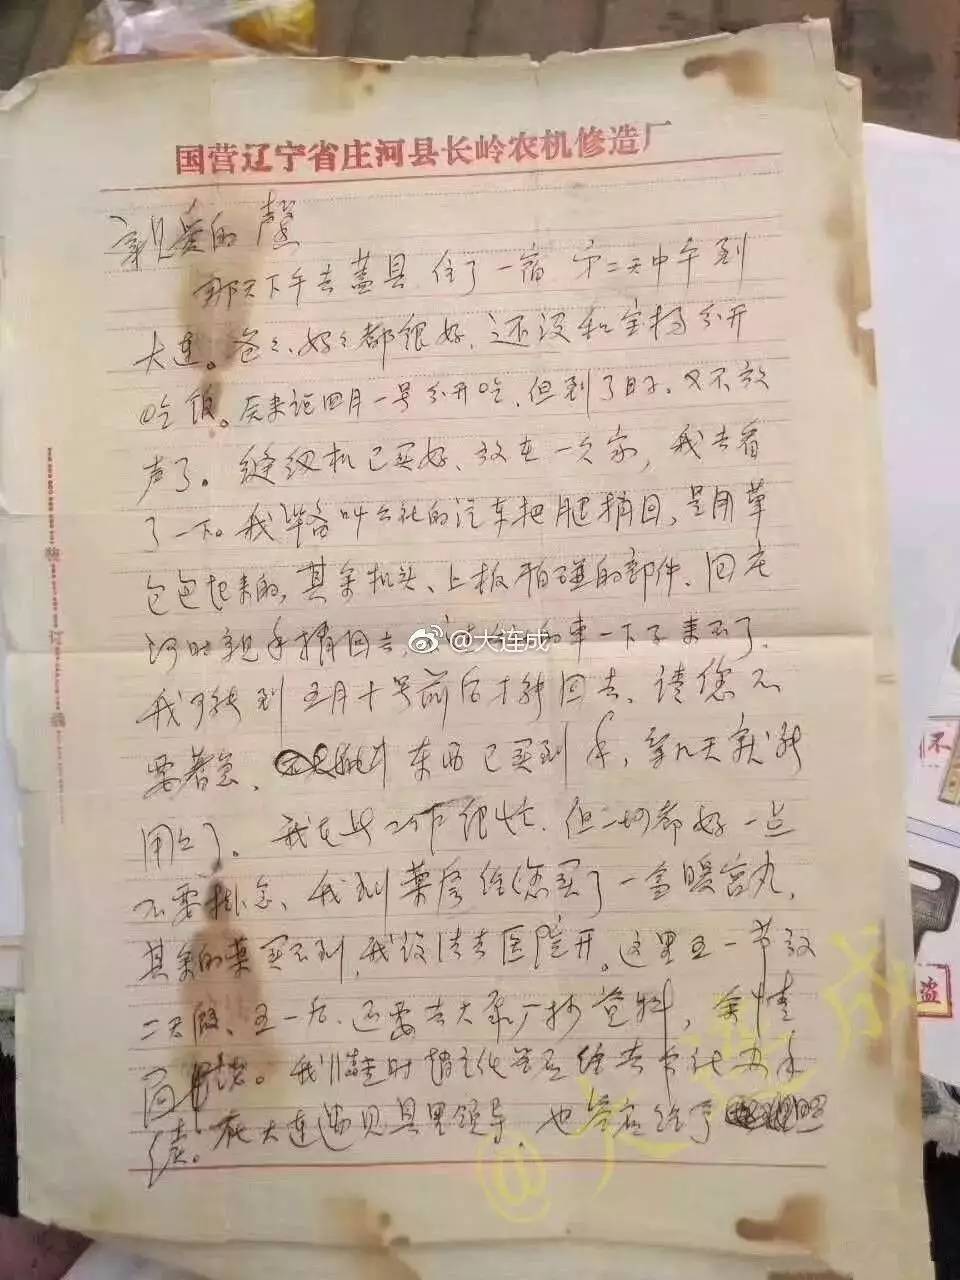 国营辽宁省庄河县长岭农机修造厂
亲爱的馨
那天下午去盖县住了一宿 第二天中午到
大连。爸々、妈々都很好，还没和宝杨分开
吃饭。原来说四月一号分开吃，但到了日子，又不放
声了。缝纫机已买好、放在一次家，我去看
了一下。我准备叫公社的汽车把腿捎回，是用草
包包起来的，其余机头、上板怕碰的部件、回庄
河时亲手捎回去，的车一下子来不了，
我可能到五月十号前后才能回去、请您不
要着急，东西已买到手，拿几天就能
用上了。我在此工作很忙，但一切都好一点
不要挂念、我到药房给您买了一盒暖宫丸，
其余的药买不到，我设法去医院开。这里五一节放
二天假、五一后，还要去大厂抄资料，余情
回。我临走时
续。在大连遇见县里领导，也答应给
@大连成
@大连成
不
盗
订